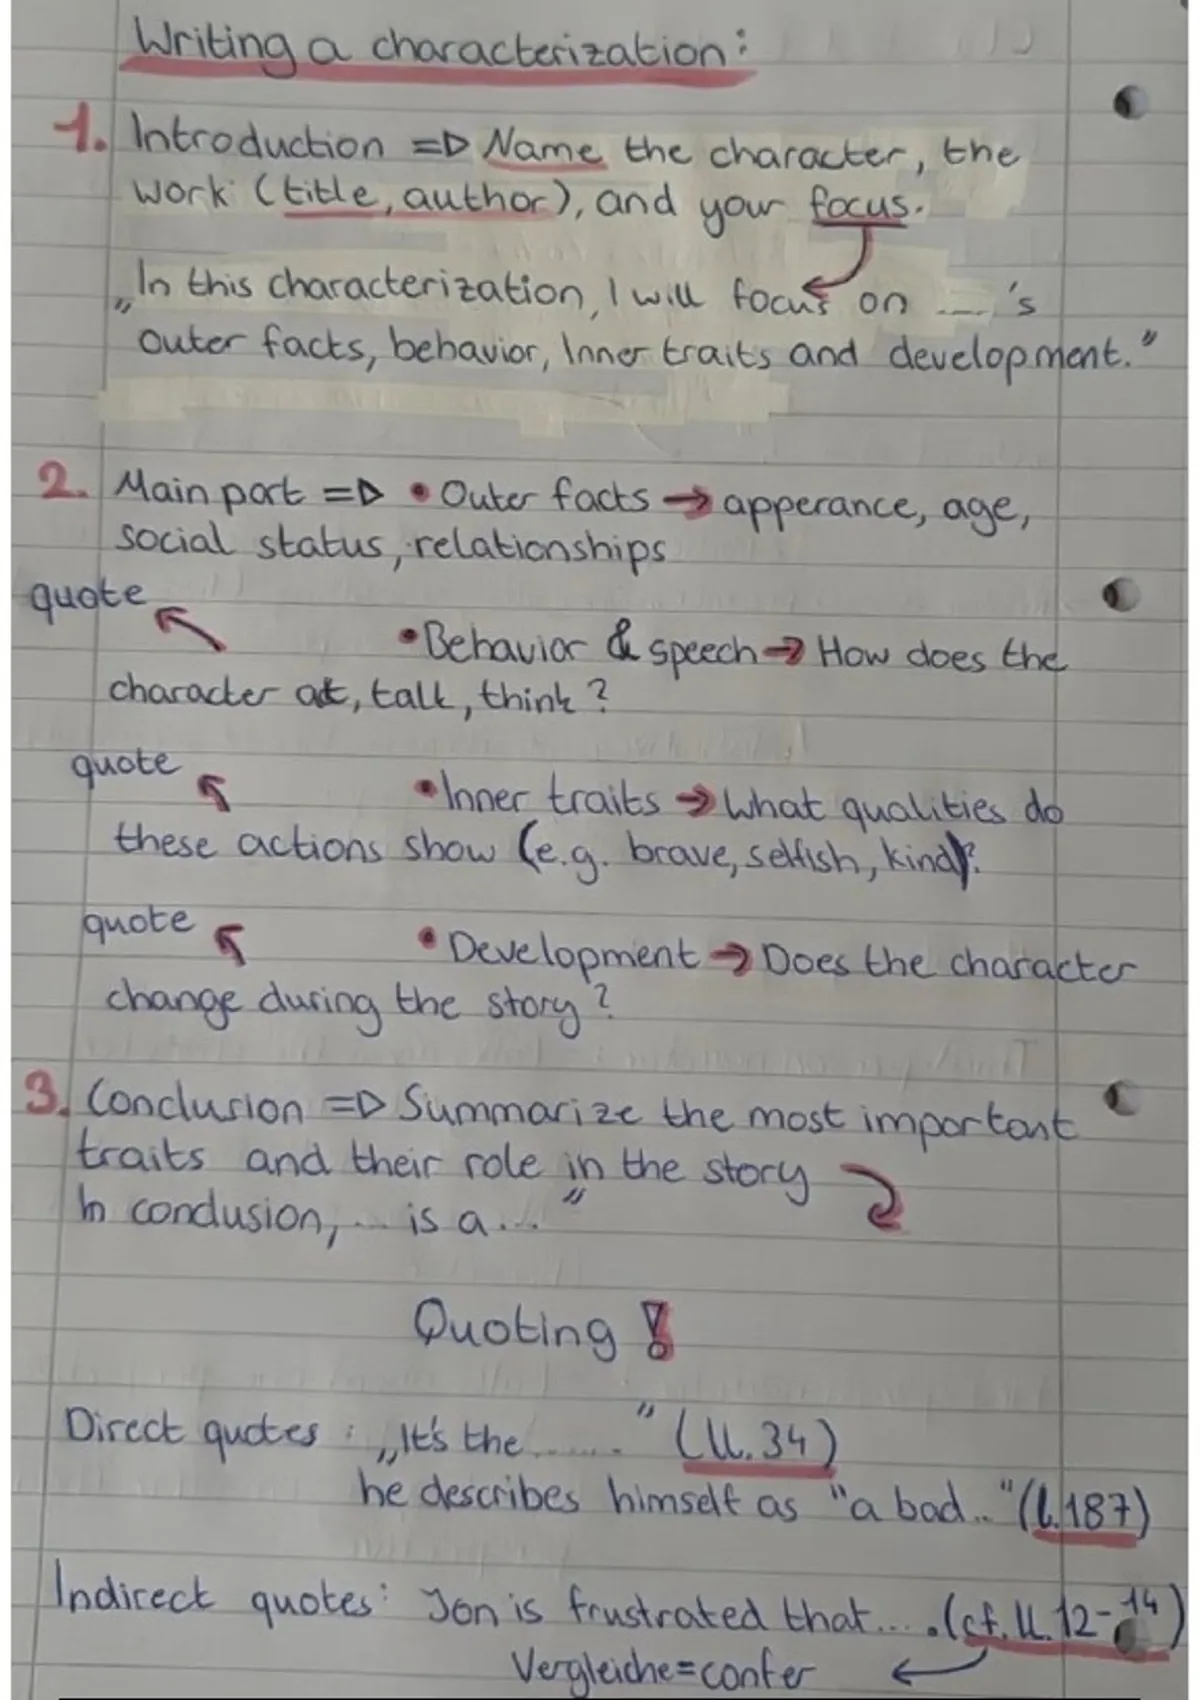 Writing a characterization:
1. Introduction => Name the character, the
work (title, author), and your focus.
„In this characterization, I will focus on ....'s
outer facts, behavior, Inner traits and development."
2. Main part => • Outer facts → apperance, age,
social status, relationships
quote
• Behavior & speech → How does the
character act, talk, think?
quote
• Inner traits → What qualities do
these actions show (e.g. brave, selfish, kind)?
quote
• Development → Does the character
change during the story?
3. Conclusion => Summarize the most important
traits and their role in the story
In conclusion, ... is a ..."
Quoting!
Direct quotes: „It's the ......" (ll. 34)
he describes himself as "a bad.." (l. 187)
Indirect quotes: Jon is frustrated that.... (cf. ll. 12-14)
Vergleiche=confer ←